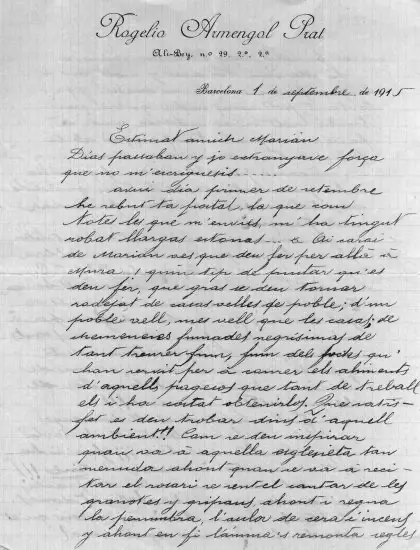 Rogelio Armengol Prat
Ali-Bey, nº 29, 2º, 2ª
Barcelona 1 de septembre de 1915
Estimat amich Marián
Dias passaban y jo estranyave força
que no m'escriguesis......
avui dia primer de setembre
he rebut ta postal, la que com
totes les que m'envies, m'ha tingut
robat llargas estonas... Ai carai
de Marián ves que deu fer per allá á
Mura! quin tip de pintar qu'es
deu fer, que gras se deu tornar
radejat de casas velles de poble; d'un
poble vell, mes vell que les casas; de
xemeneies fumades negrisimas de
tant treurer fum, fum dels focs qu'
han servit per á courer els aliments
d'aquells pagesos que tant de treball
els i ha costat obtenirlos. Que satis-
fet es deu trobar dins d'aquell
ambient!! Com se deu inspirar
quan va á aquella esglesieta tan
menuda ahont quan se va á reci-
tar el rosari se sent el cantar de les
granotes y gripaus, ahont i regna
la penumbra, l'aulor de cera i incens
y ahont en fi l'anima s'remonta regles